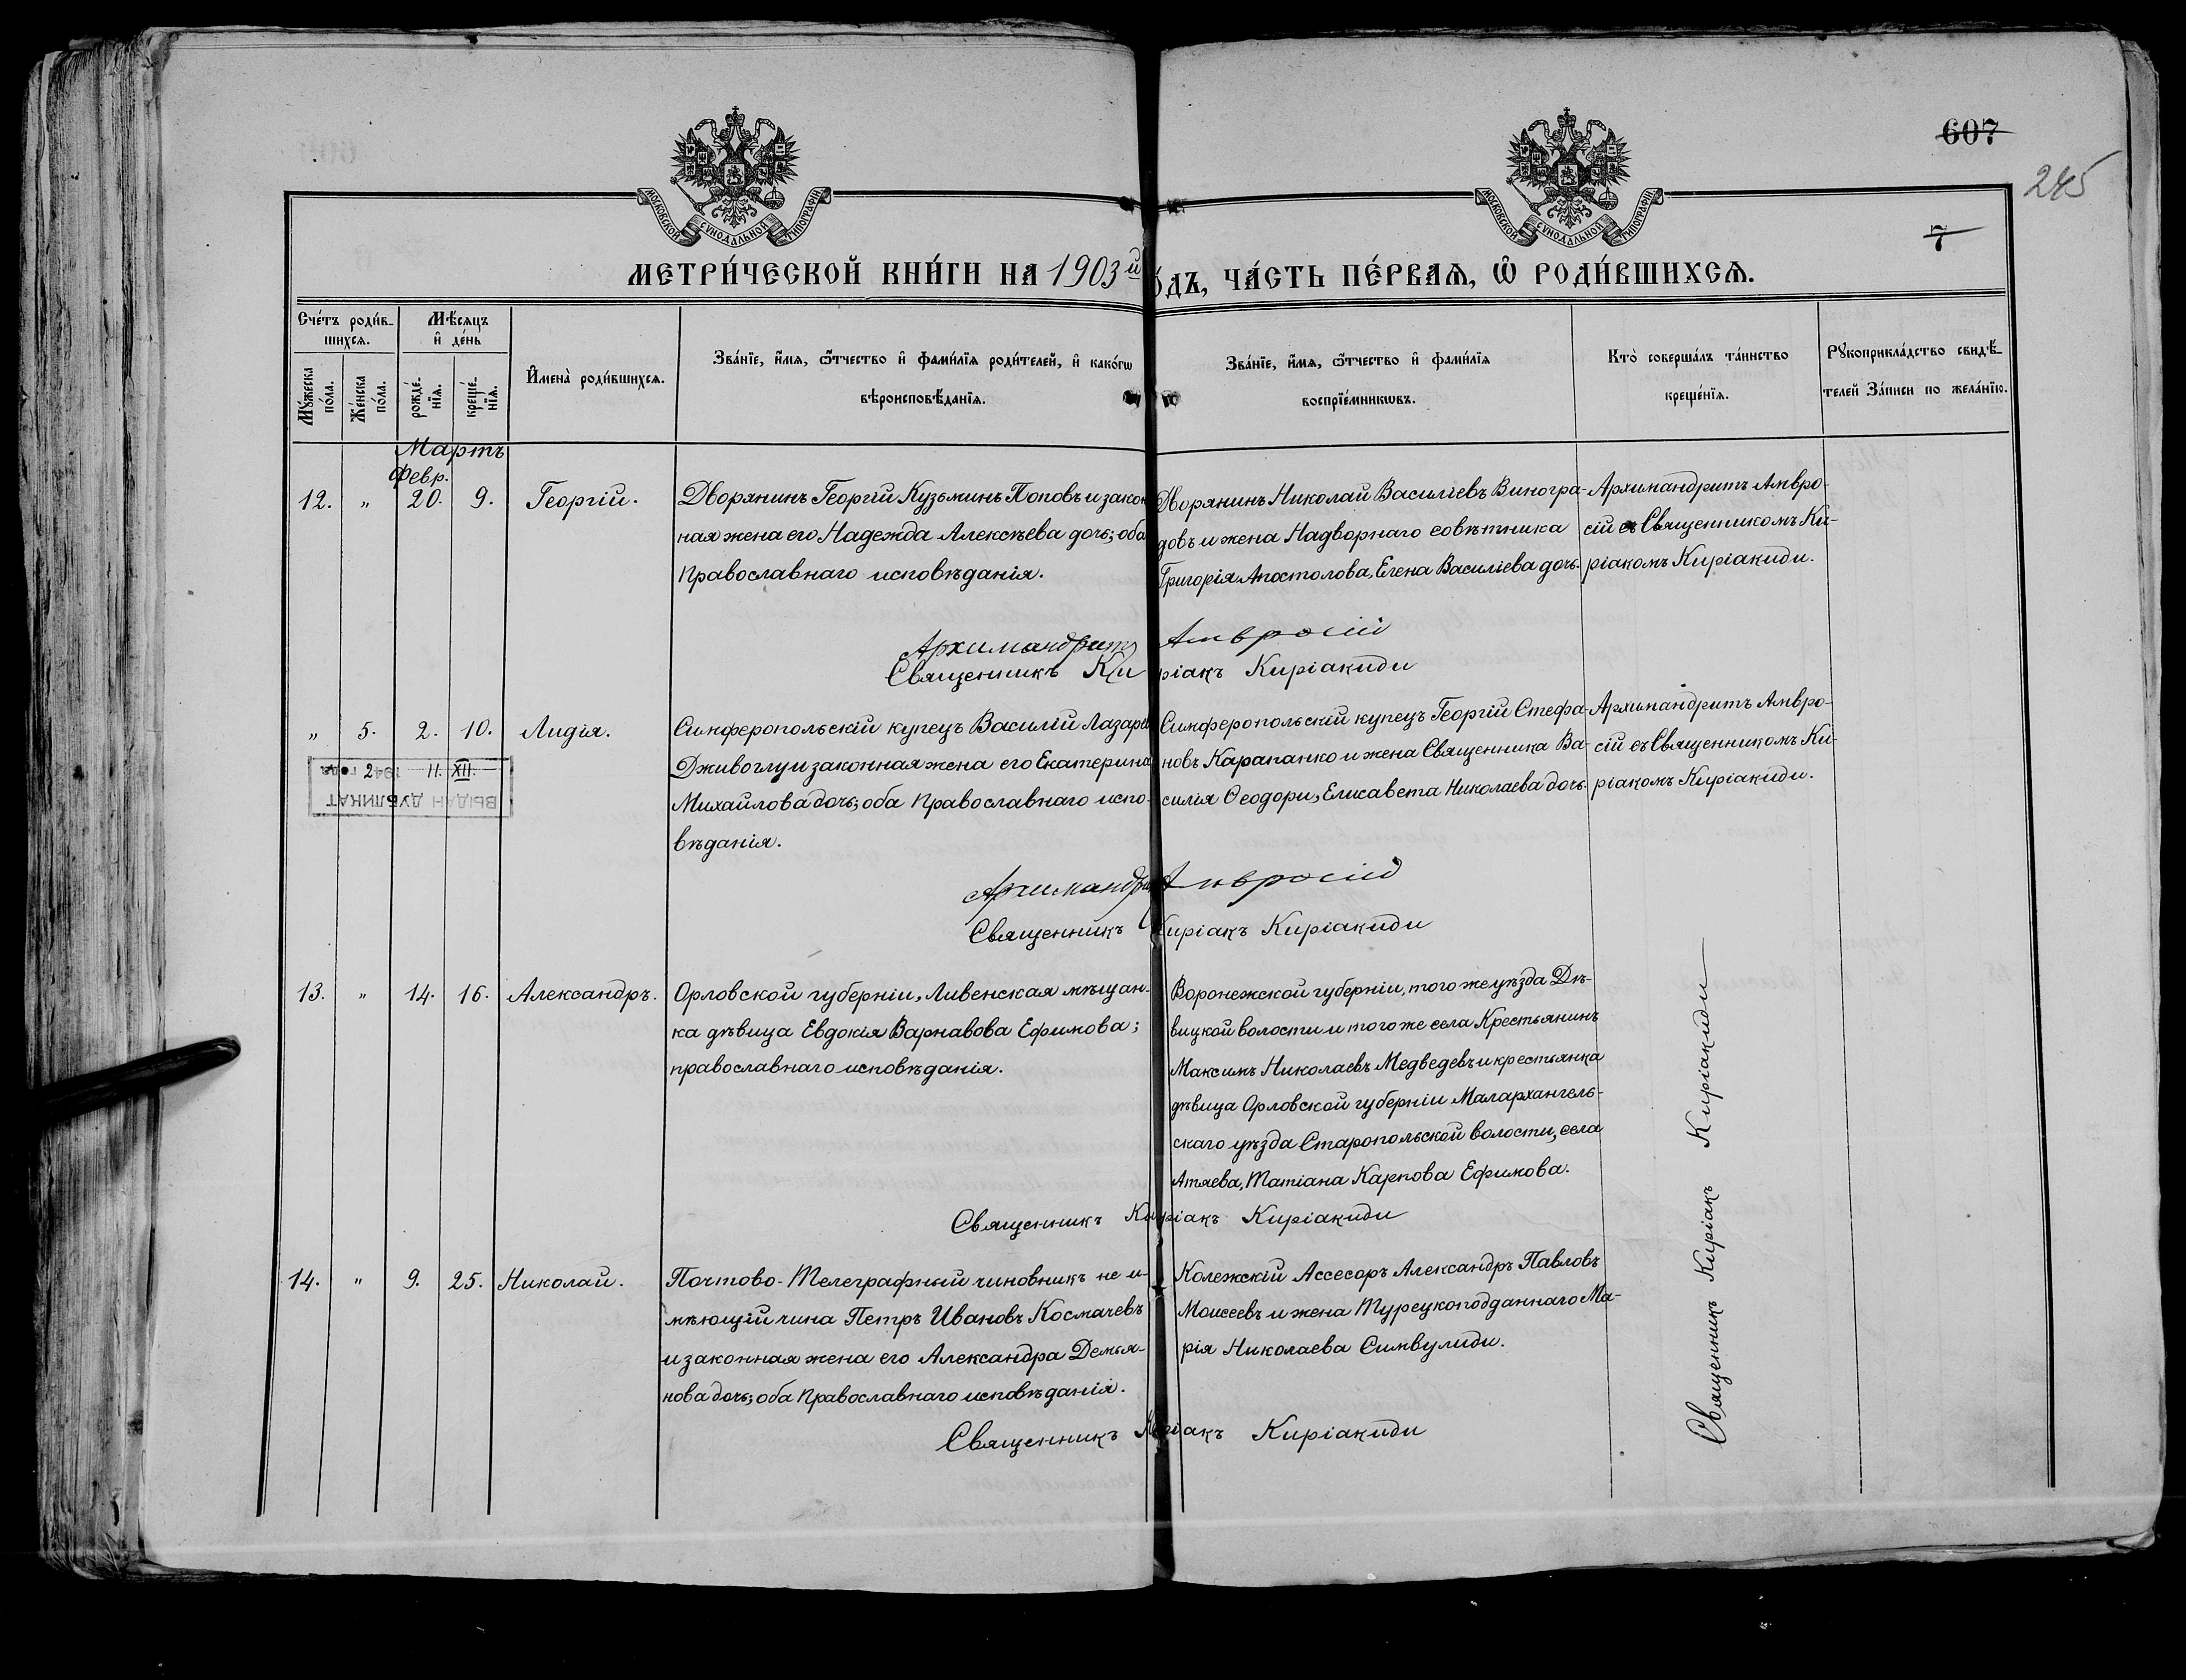 607
245
7
МОСКОВСКОЙ СУНОДАЛЬНОЙ ТИПОГРАФИИ
МОСКОВСКОЙ СУНОДАЛЬНОЙ ТИПОГРАФИИ
МЕТРИ́ЧЕСКОЙ КНИ́ГИ НА 1903й
о́дъ, ЧА́СТЬ ПЕ́РВАѦ, Ѡ҆ РОДИ́ВШИХСѦ.
Сче́тъ роди́в-
шихсѧ.
Мꙋ́жеска по́ла.
Же́нска по́ла.
Мѣ́сѧцъ
и҆ де́нь
рожде́-
нїѧ.
креще́-
нїѧ.
И҆мена̀ роди́вшихсѧ.
Зва́нїе, и҆́мѧ, ѻ҆́тчество и҆ фами́лїѧ роди́телей, и҆ како́гѡ
вѣроисповѣ́данїѧ.
Зва́нїе, и҆́мѧ, ѻ҆́тчество и҆ фами́лїѧ
воспрїе́мникѡвъ.
Кто̀ соверша́лъ та́инство
креще́нїѧ.
Рꙋкоприкла́дство свидѣ́-
телей За́писи по жела́нїю.
Мартъ
Февр.
12. " 20. 9. Георгій.
Дворянинъ Георгій Кузьминъ Поповъ и закон
ная жена его Надежда Алексѣева дочь; оба
Православнаго исповѣданія.
Дворянинъ Николай Василіевъ Виногра-
довъ и жена Надворнаго совѣтника
Григорія Апостолова, Елена Василіева дочь.
Архимандритъ Амвро-
сій съ Священникомъ Ки-
ріакомъ Киріакиди.
Архимандритъ Амвросій
Священникъ Киріакъ Киріакиди
" 5. 2. 10. Лидія.
ВЫДАН ДУБЛИКАТ
11 XII 194 года
Симферопольскій купецъ Василій Лазарев
Дживоглу и законная жена его Екатерина
Михайлова дочь; оба Православнаго испо-
вѣданія.
Симферопольскій купецъ Георгій Стефа-
новъ Карапанко и жена Священника Ва-
силія Ѳеодори, Елисавета Николаева дочь.
Архимандритъ Амвро-
сій съ Священникомъ Ки-
ріакомъ Киріакиди.
Архимандри Амвросій
Священникъ Киріакъ Киріакиди
13. " 14. 16. Александръ.
Орловской губерніи, Ливенская мѣщан-
ка дѣвица Евдокія Варнавова Ефимова;
православнаго исповѣданія.
Воронежской губерніи, того же уѣзда Дѣ-
вицкой волости и того же села Крестьянинъ
Максимъ Николаевъ Медведевъ и крестьянка
дѣвица Орловской губерніи Малархангель-
скаго уѣзда Старопольской волости, села
Атяева, Татіана Карпова Ефимова.
Священникъ Киріакъ Киріакиди
14. " 9. 25. Николай.
Почтово-Телеграфный чиновникъ не и-
мѣющій чина Петръ Ивановъ Космачевъ
и законная жена его Александра Демья-
нова дочь; оба Православнаго исповѣданія.
Колежскій Ассесоръ Александръ Павловъ
Моисеевъ и жена Турецкоподданнаго Ма-
рія Николаева Симвулиди.
Священникъ Киріакъ Киріакиди
Священникъ Киріакъ Киріакиди